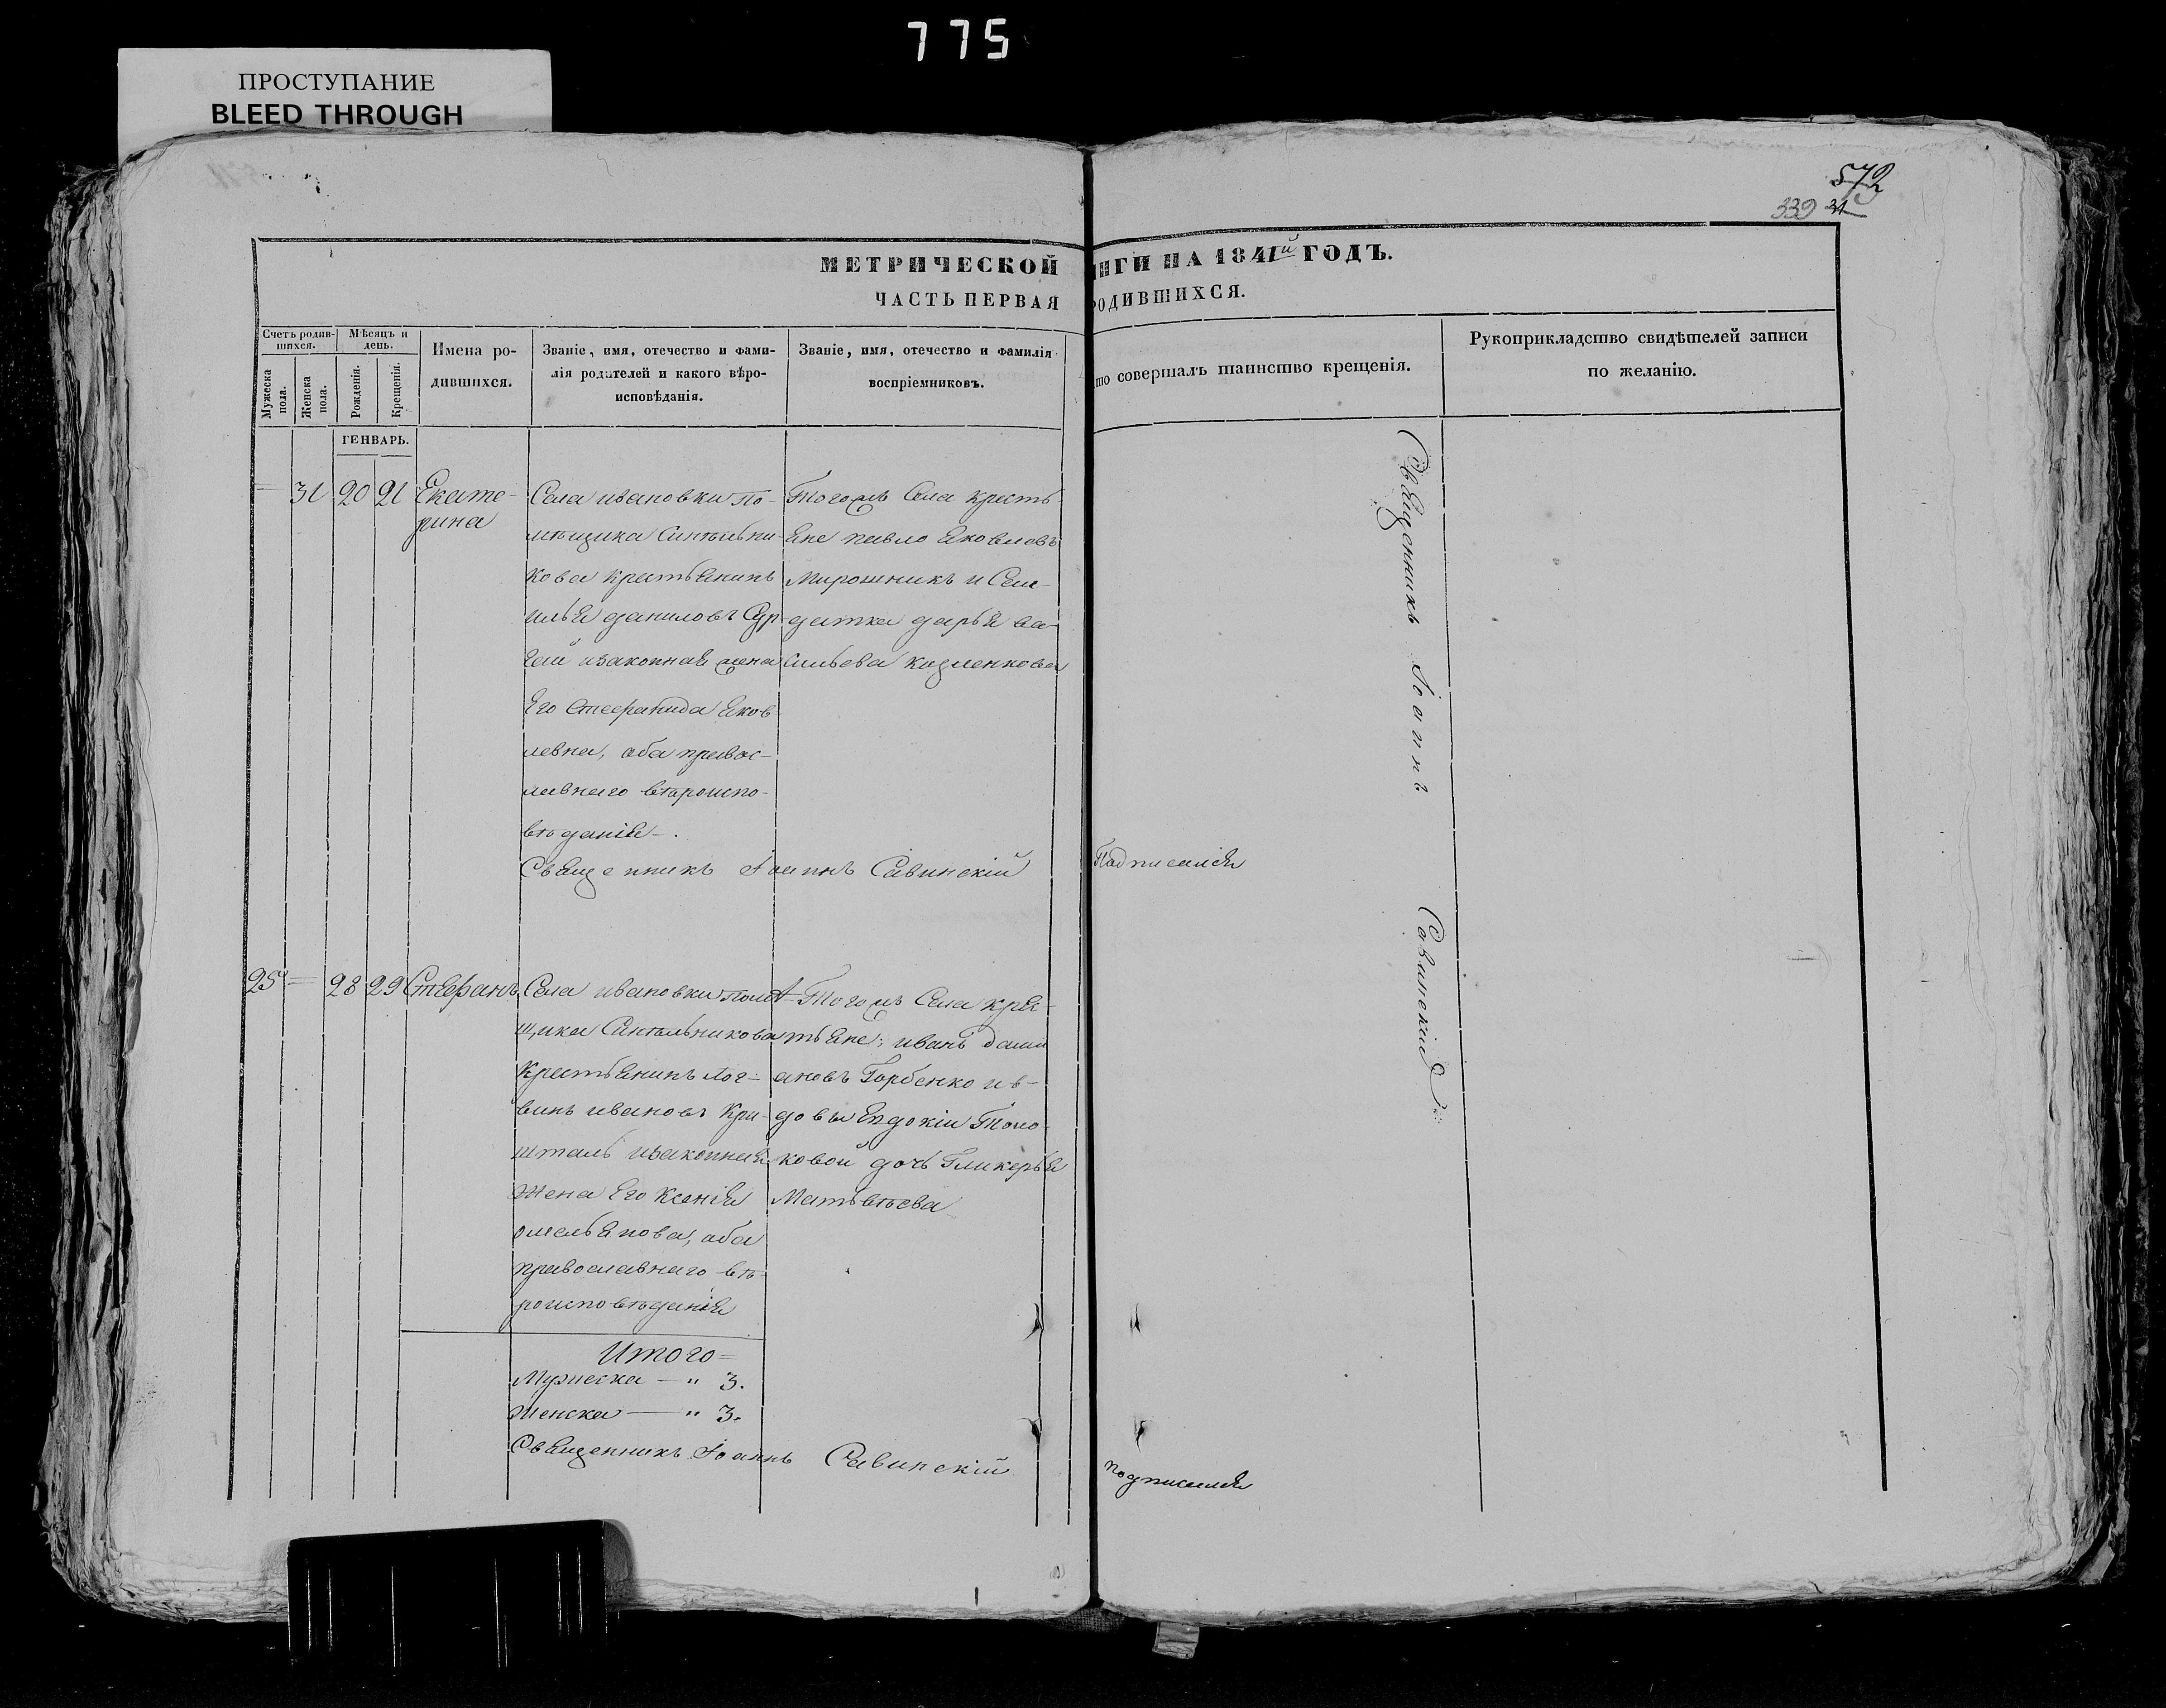 775
ПРОСТУПАНИЕ
BLEED THROUGH
572
339 31
МЕТРИЧЕСКОЙ
НГИ НА 1841й ГОДЪ.
ЧАСТЬ ПЕРВАЯ
РОДИВШИХСЯ.
Счетъ родив-
шихся.
Мужеска
пола.
Женска
пола.
Мѣсяцъ и
день.
Рожденія.
Крещенія.
Имена ро-
дившихся.
Званіе, имя, отечество и фами-
лія родителей и какого вѣро-
исповѣданія.
Званіе, имя, отечество и фамилія
воспріемниковъ.
то совершалъ таинство крещенія.
Рукоприкладство свидѣтелей записи
по желанію.
ГЕНВАРЬ.
31 20 21
Екате-
рина
Села ивановки по-
мѣщика Синѣльни-
кова крестьянинъ
илья даниловъ
изаконная жена
Его Стефанида Яков-
левна, оба правос-
лавнаго вѣроиспо-
вѣданія.
Тогожъ Села кресть-
яне павло Яковлевъ
Мирошникъ и Сол-
датка дарья ва-
сильева козленкова
Священникъ Іоаннъ Савинскій
Подписался
Священникъ Іоаннъ Савинскій
25 28 29
Стефанъ
Села ивановки помѣ-
щика Синѣльникова
крестьянинъ лог-
винъ ивановъ Кри-
шталь изаконная
жена Его Ксенія
омельянова, оба
православнаго вѣ-
роисповѣданія
Тогожъ Села кре-
тьяне; иванъ
Горбенко ив-
довы Евдокіи
ковой дочь Гликерья
Матьвѣева
Итого
Мужеска — " 3.
Женска — " 3.
Священникъ Іоаннъ Савинскій
подписался